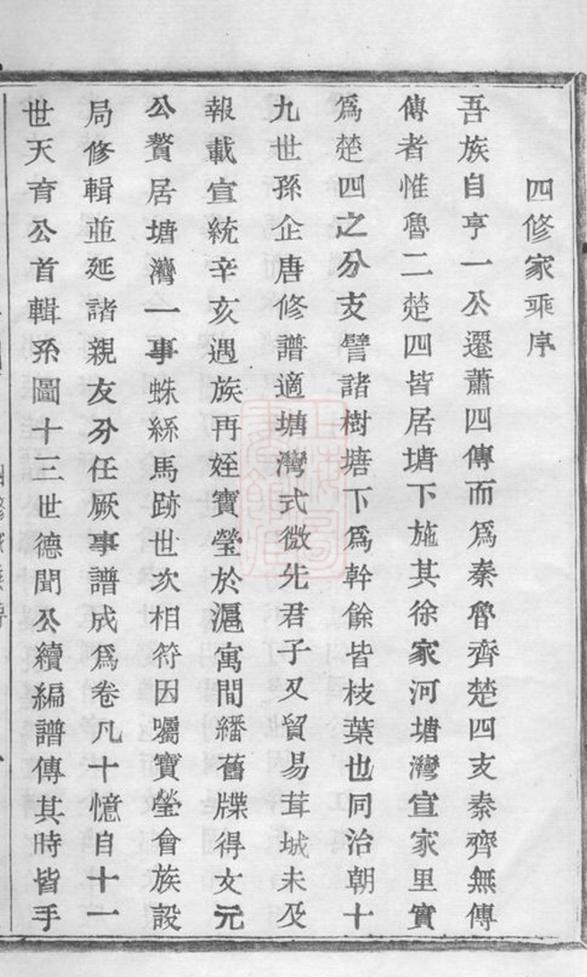 四修家乘序
吾族自亨一公遷蕭四傳而爲秦魯齊楚四支秦齊無傳
傳者惟魯二楚四皆居塘下施其徐家河塘灣宣家里實
爲楚四之分支譬諸樹塘下爲幹餘皆枝葉也同治朝十
九世孫企唐修譜適塘灣式微先君子又貿易茸城未及
報載宣統辛亥遇族再姪寶瑩於滬寓間繙舊牒得文元
公贅居塘灣一事蛛絲馬跡世次相符因囑寶瑩會族設
局修輯並延諸親友分任厥事譜成爲卷凡十憶自十一
世天育公首輯系圖十三世德聞公續編譜傳其時皆手